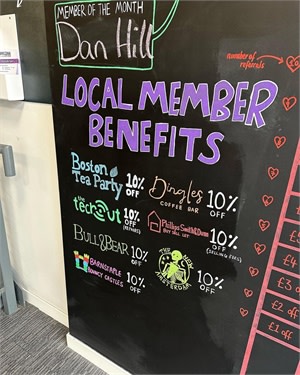 MEMBER OF THE MONTH
Dan Hill
number of referrals
LOCAL MEMBER
BENEFITS
Boston Tea Party 10% OFF
Dingles COFFEE BAR 10% OFF
the tech out 10% OFF (REPAIRS)
Phillips Smith & Dunn BUY SELL LET 10% OFF (SELLING FEES)
BULL & BEAR 10% OFF
THE NEW AMSTERDAM 10% OFF
BARNSTAPLE BOUNCY CASTLES 10% OFF
£3 OFF
£2 OFF
£1 OFF